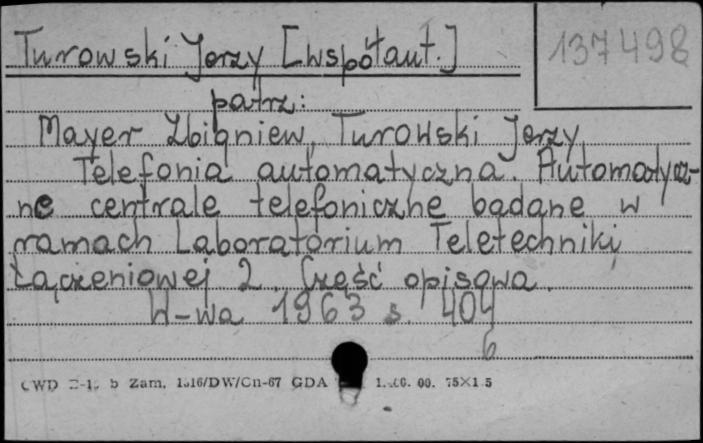 Turowski Jerzy [współaut.]
137498
patrz:
Mayer Zbigniew, Turowski Jerzy
Telefonia automatyczna. Automatycz-
ne centrale telefoniczne badane w
ramach Laboratorium Teletechniki
Łączeniowej 2. Część opisowa.
W-wa 1963 s. 404
6
Zam. GDA